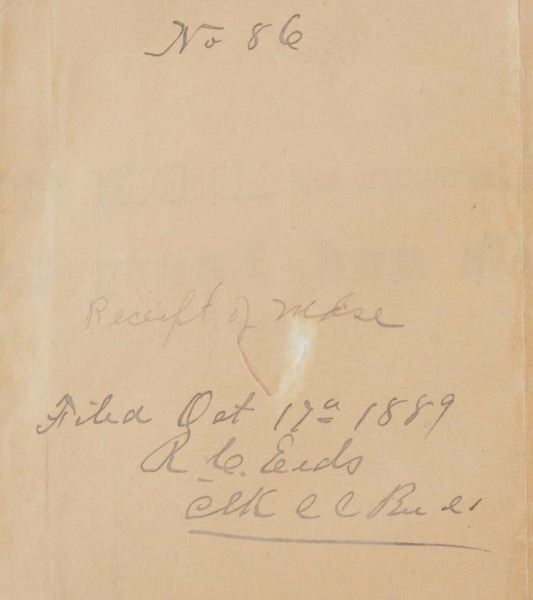 No 86
Receipt of Mdse
Filed Oct 17a 1889
R. C. Eids
Clk C C